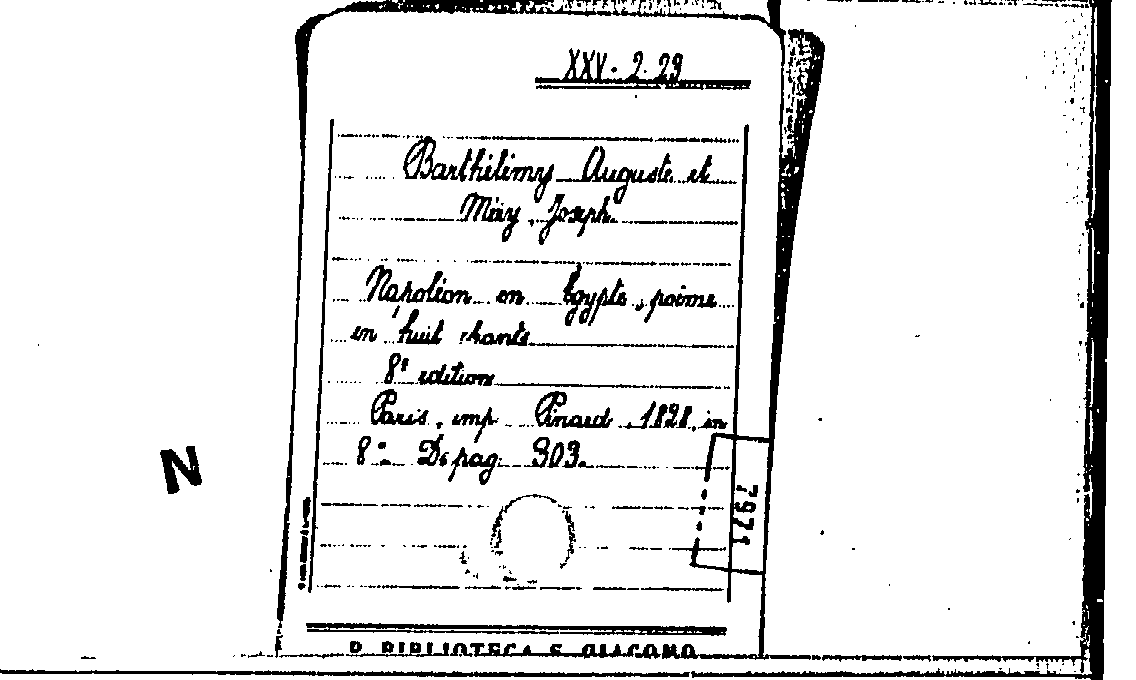 XXV. 2. 29
Barthélémy Auguste et
Méry, Joseph.
Napoléon en Égypte, poème
en huit chants
8e edition
Paris, imp Pinard, 1828, in
8° De pag 303.
N
R BIBLIOTECA S GIACOMO